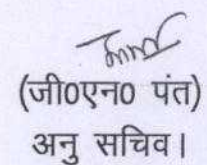 (जी0एन0 पंत)
अनु सचिव।